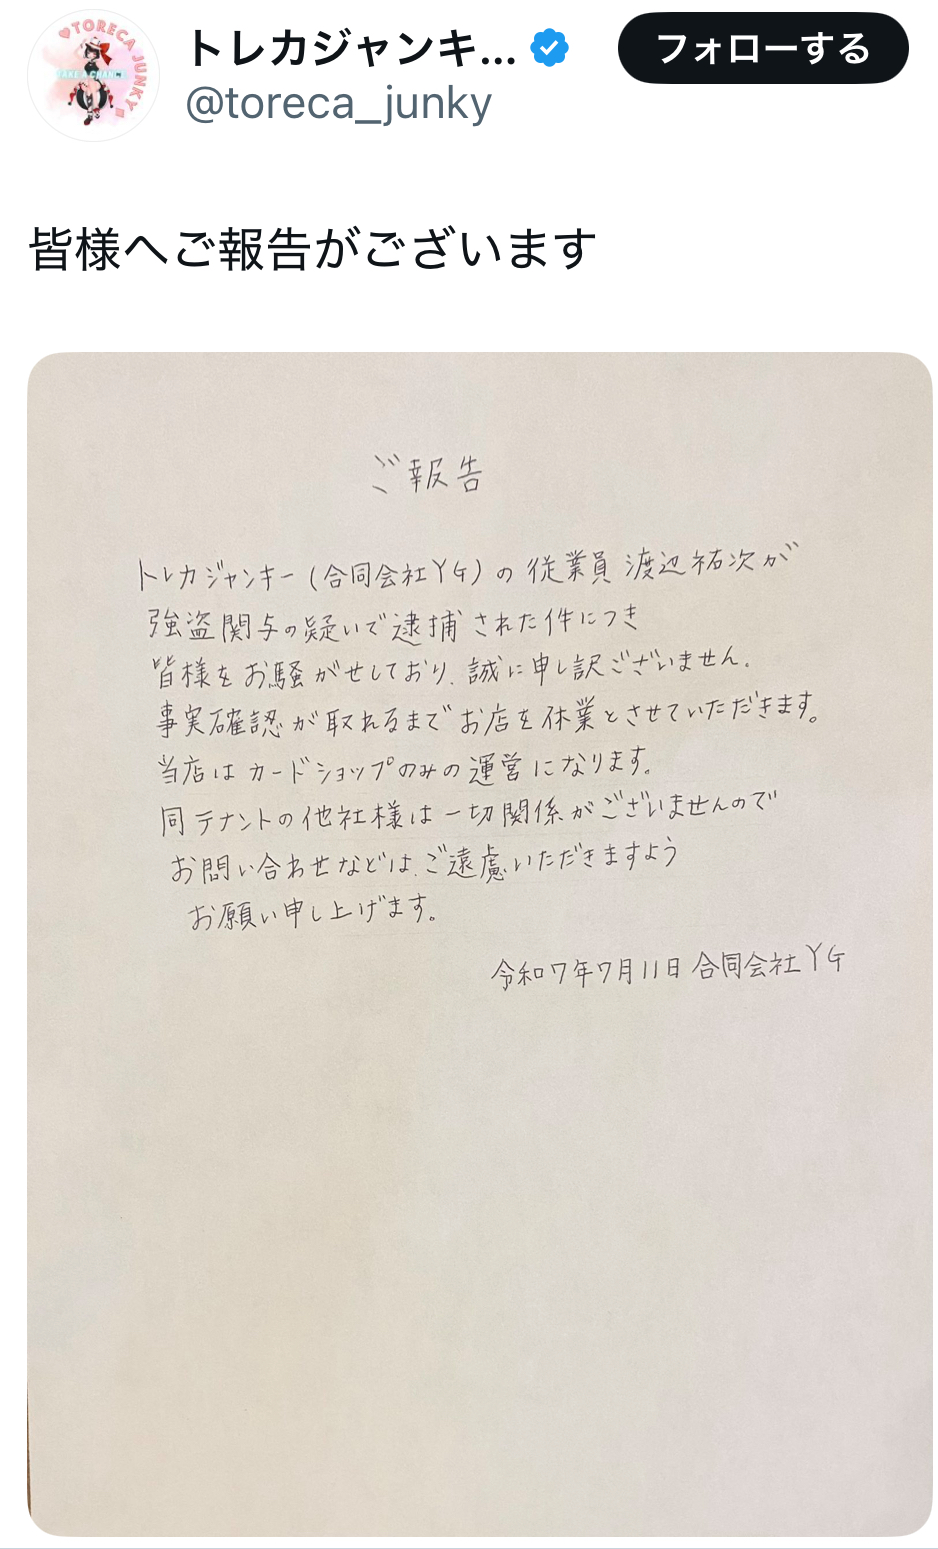 TORECA JUNKY
TAKE A CHANCE
トレカジャンキ...
フォローする
@toreca_junky
皆様へご報告がございます
ご報告
トレカジャンキー(合同会社YG)の従業員渡辺祐次が
強盗関与の疑いで逮捕された件につき
皆様をお騒がせしており、誠に申し訳ございません。
事実確認が取れるまでお店を休業とさせていただきます。
当店はカードショップのみの運営になります。
同テナントの他社様は一切関係がございませんので
お問い合わせなどは、ご遠慮いただきますよう
お願い申し上げます。
令和7年7月11日 合同会社YG